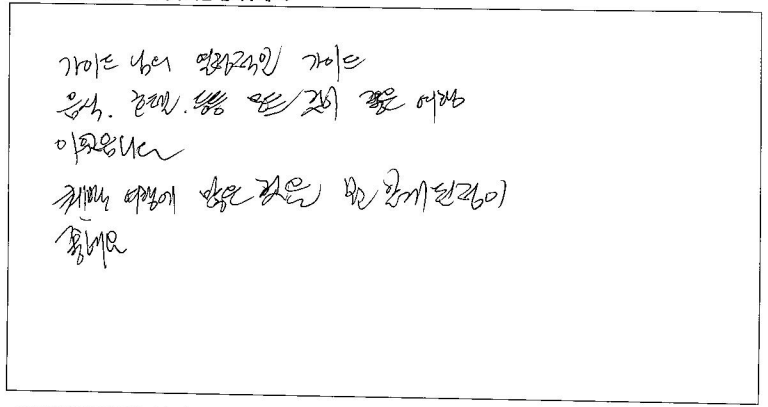 가이드 님의 열정적인 가이드
음식. 호텔. 등등 모든 것이 좋은 여행
이었읍니다
여행에 많은 것을 보고 알게된점이
좋네요